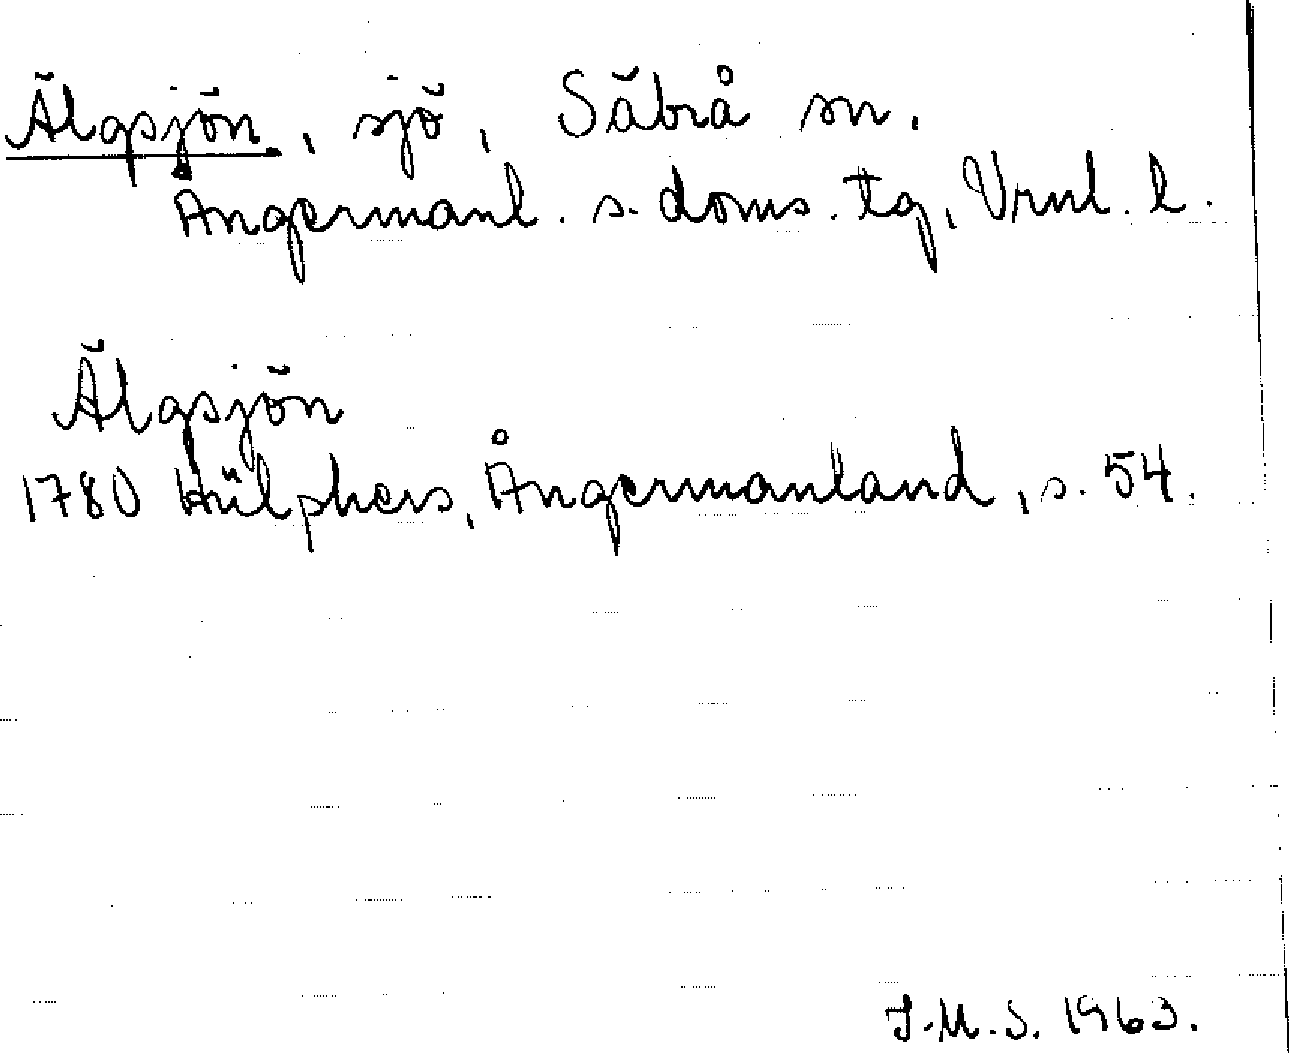 Älgsjön, sjö, Säbrå sn.
Ångermanl. s. doms. tg, Vrnl. l.
Älgsjön
1780 Hülphers, Ångermanland, s. 54.
I.M.S. 1963.